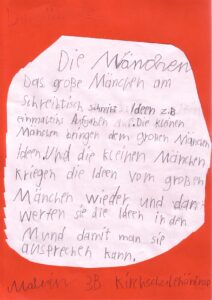 Die Mänchen
Das große Mänchen am
Schreibtisch schmist Ideen z.B
einmaleins Aufgaben auf. Die kleinen
Mänchen bringen dem großen Mänchen
Ideen. Und die kleinen Mänchen
kriegen die Ideen vom großen
Mänchen wieder und dan
werfen sie die Ideen in den
Mund damit man sie
aussprechen kann.
Malvin 3B